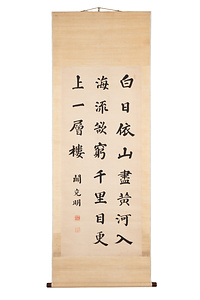 白日依山盡黃河入
海流欲窮千里目更
上一層樓
克明